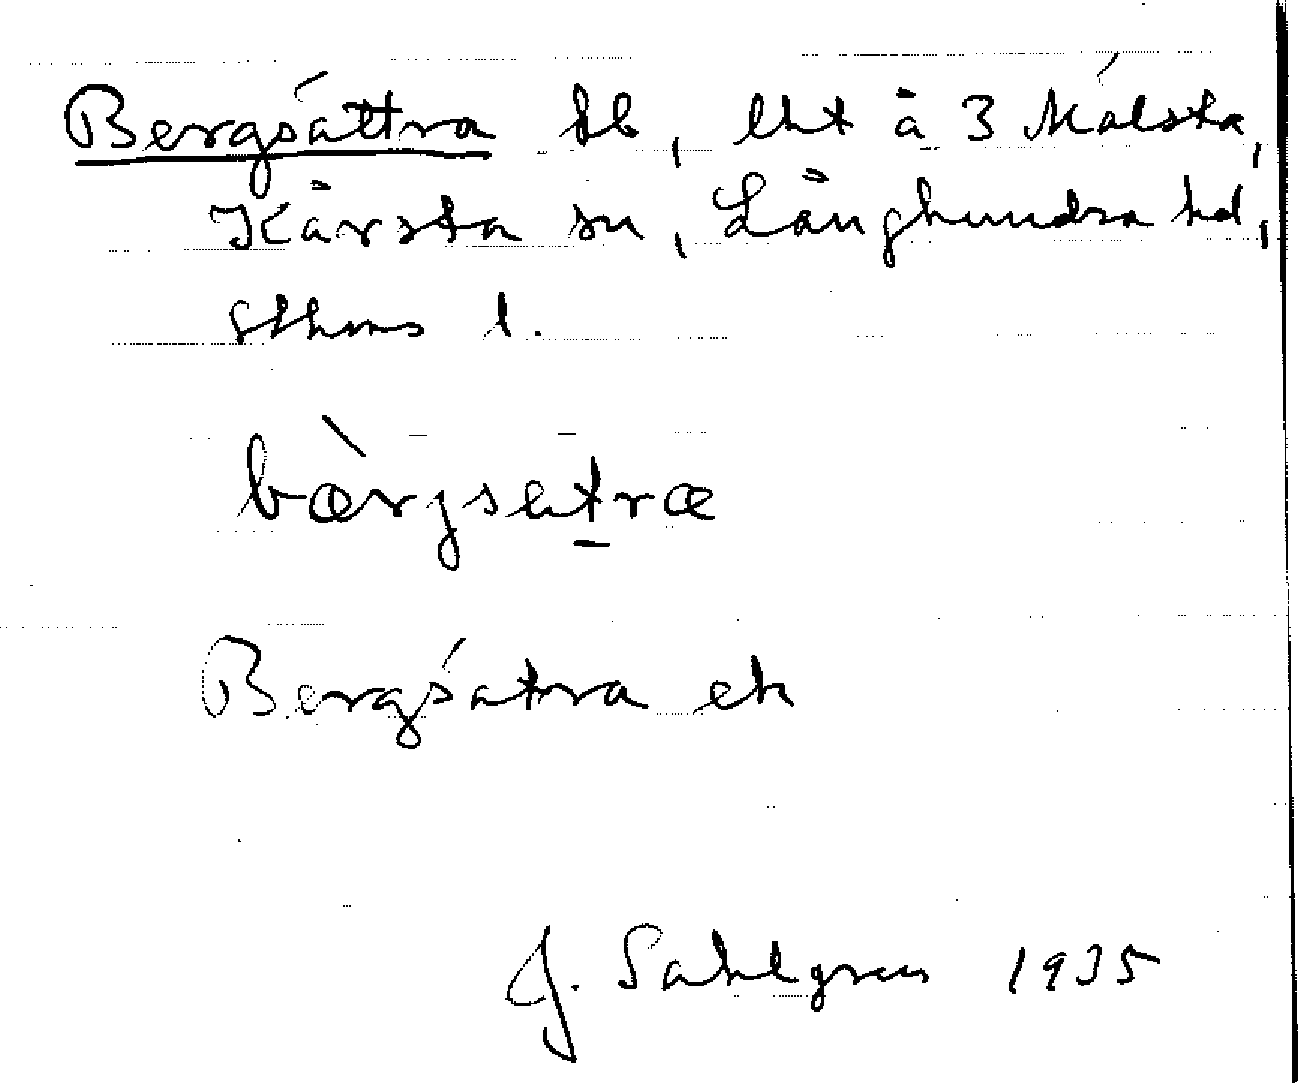 Bergsättra tb, lht å 3 Målsta,
Kårsta sn, Långhundra hd,
Sthms l.
bærgsetræ
Bergsätra ek
J. Sahlgren 1935